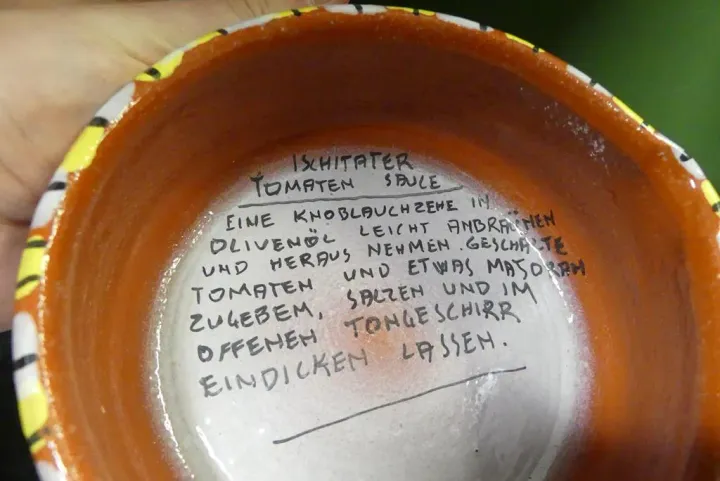 ISCHITATER
TOMATEN SAUCE
EINE KNOBLAUCHZEHE IN
OLIVENÖL LEICHT ANBRAÜNEN
UND HERAUS NEHMEN. GESCHÄLTE
TOMATEN UND ETWAS MAJORAN
ZUGEBEM, SALZEN UND IM
OFFENEN TONGESCHIRR
EINDICKEN LASSEN.